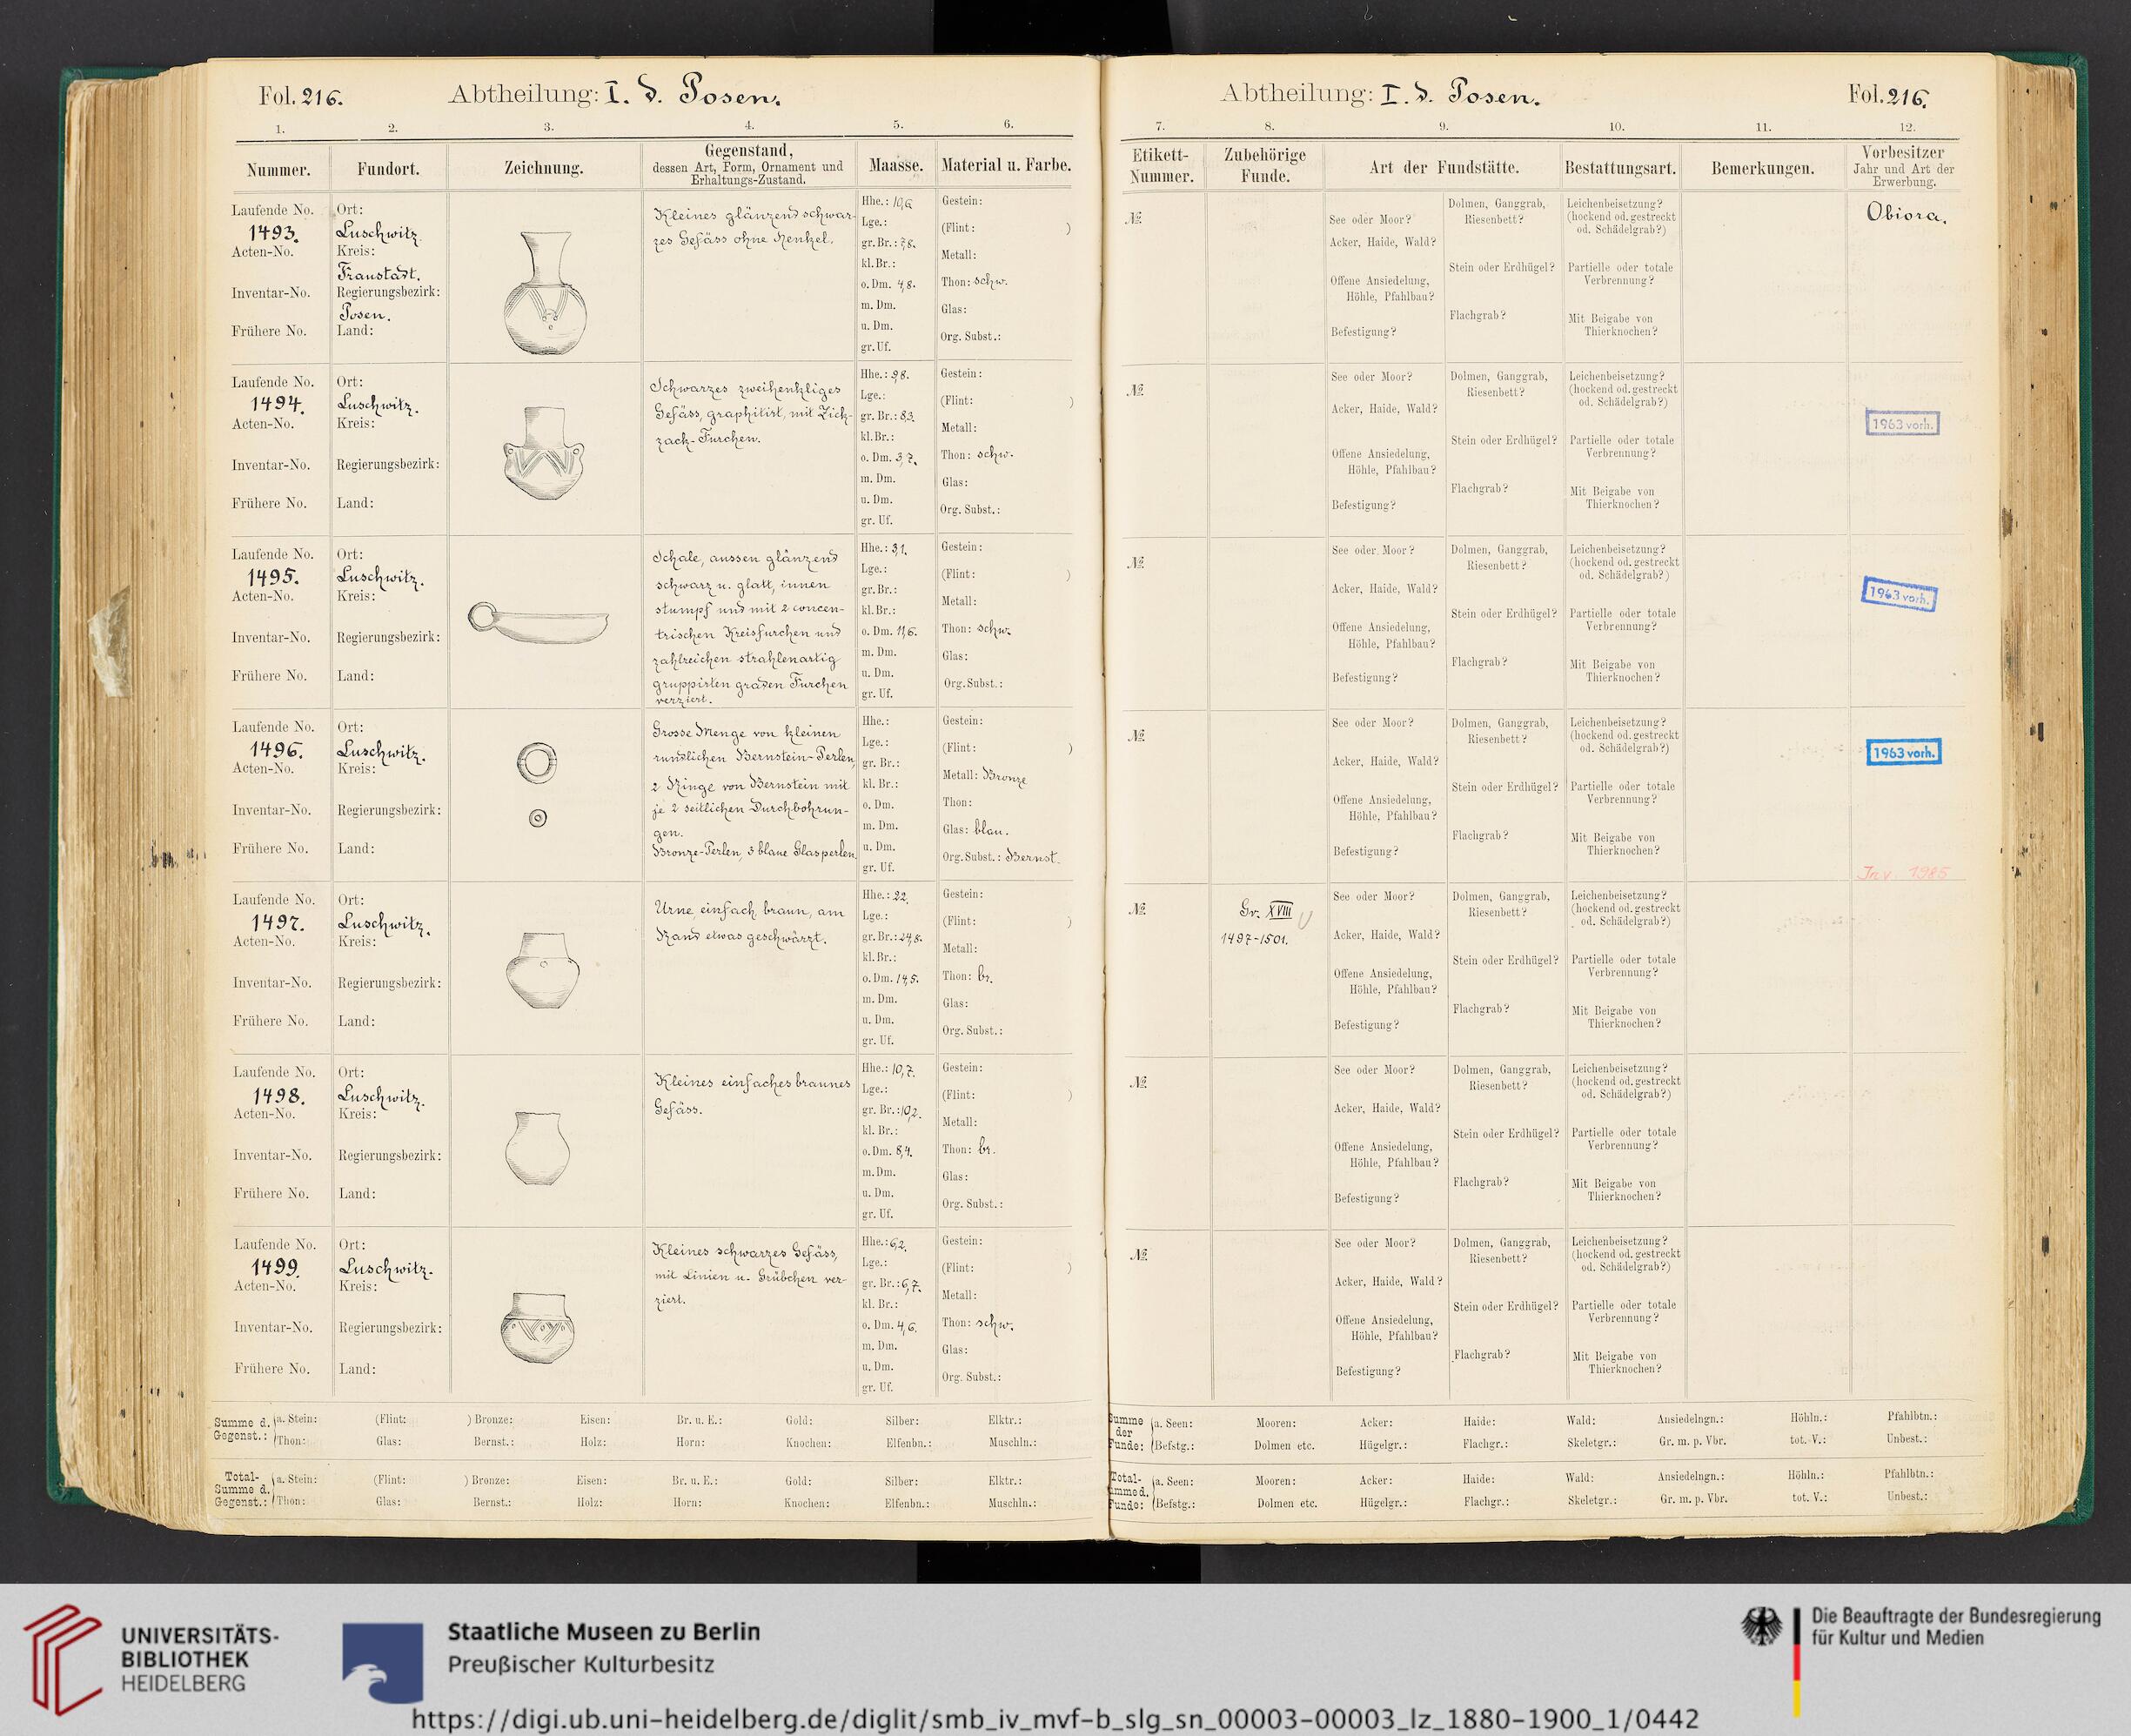 Fol. 216. Abtheilung: I. d. Posen.
1. 2. 3. 4. 5. 6.
Nummer. Fundort. Zeichnung. Gegenstand, dessen Art, Form, Ornament und Erhaltungs-Zustand. Maasse. Material u. Farbe.
Laufende No. 1493.
Acten-No.
Inventar-No.
Frühere No.
Ort: Luschwitz.
Kreis: Fraustadt.
Regierungsbezirk: Posen.
Land:
Kleines glänzend schwar-
zes Gefäss ohne Henkel.
Hhe.: 10,6
Lge.:
gr. Br.: 7,8.
kl. Br.:
o. Dm. 4,8.
m. Dm.
u. Dm.
gr. Uf.
Gestein:
(Flint: )
Metall:
Thon: schw.
Glas:
Org. Subst.:
Laufende No. 1494.
Acten-No.
Inventar-No.
Frühere No.
Ort: Luschwitz.
Kreis:
Regierungsbezirk:
Land:
Schwarzes zweihenkliges
Gefäss, graphitirt, mit Zick-
zack-Furchen.
Hhe.: 9,8.
Lge.:
gr. Br.: 8,3.
kl. Br.:
o. Dm. 3,7.
m. Dm.
u. Dm.
gr. Uf.
Gestein:
(Flint: )
Metall:
Thon: schw.
Glas:
Org. Subst.:
Laufende No. 1495.
Acten-No.
Inventar-No.
Frühere No.
Ort: Luschwitz.
Kreis:
Regierungsbezirk:
Land:
Schale, aussen glänzend
schwarz u. glatt, innen
stumpf und mit 2 concen-
trischen Kreisfurchen und
zahlreichen strahlenartig
gruppirten graden Furchen
verziert.
Hhe.: 3,1.
Lge.:
gr. Br.:
kl. Br.:
o. Dm. 11,6.
m. Dm.
u. Dm.
gr. Uf.
Gestein:
(Flint: )
Metall:
Thon: schw.
Glas:
Org. Subst.:
Laufende No. 1496.
Acten-No.
Inventar-No.
Frühere No.
Ort: Luschwitz.
Kreis:
Regierungsbezirk:
Land:
Grosse Menge von kleinen
rundlichen Bernstein-Perlen,
2 Ringe von Bernstein mit
je 2 seitlichen Durchbohrun-
gen.
Bronze-Perlen, 3 blaue Glasperlen.
Hhe.:
Lge.:
gr. Br.:
kl. Br.:
o. Dm.
m. Dm.
u. Dm.
gr. Uf.
Gestein:
(Flint: )
Metall: Bronze
Thon:
Glas: blau.
Org. Subst.: Bernst.
Laufende No. 1497.
Acten-No.
Inventar-No.
Frühere No.
Ort: Luschwitz.
Kreis:
Regierungsbezirk:
Land:
Urne, einfach, braun, am
Rand etwas geschwärzt.
Hhe.: 22.
Lge.:
gr. Br.: 24,8.
kl. Br.:
o. Dm. 14,5.
m. Dm.
u. Dm.
gr. Uf.
Gestein:
(Flint: )
Metall:
Thon: br.
Glas:
Org. Subst.:
Laufende No. 1498.
Acten-No.
Inventar-No.
Frühere No.
Ort: Luschwitz.
Kreis:
Regierungsbezirk:
Land:
Kleines einfaches braunes
Gefäss.
Hhe.: 10,7.
Lge.:
gr. Br.: 10,2.
kl. Br.:
o. Dm. 8,4.
m. Dm.
u. Dm.
gr. Uf.
Gestein:
(Flint: )
Metall:
Thon: br.
Glas:
Org. Subst.:
Laufende No. 1499.
Acten-No.
Inventar-No.
Frühere No.
Ort: Luschwitz.
Kreis:
Regierungsbezirk:
Land:
Kleines schwarzes Gefäss,
mit Linien u. Grübchen ver-
ziert.
Hhe.: 6,2.
Lge.:
gr. Br.: 6,7.
kl. Br.:
o. Dm. 4,6.
m. Dm.
u. Dm.
gr. Uf.
Gestein:
(Flint: )
Metall:
Thon: schw.
Glas:
Org. Subst.:
Summe d. Gegenst.: a. Stein: (Flint: ) Bronze: Eisen: Br. u. E.: Gold: Silber: Elktr.:
Thon: Glas: Bernst.: Holz: Horn: Knochen: Elfenbn.: Muschln.:
Total-Summe d. Gegenst.: a. Stein: (Flint: ) Bronze: Eisen: Br. u. E.: Gold: Silber: Elktr.:
Thon: Glas: Bernst.: Holz: Horn: Knochen: Elfenbn.: Muschln.:
Abtheilung: I. d. Posen. Fol. 216.
7. 8. 9. 10. 11. 12.
Etikett-Nummer. Zubehörige Funde. Art der Fundstätte. Bestattungsart. Bemerkungen. Vorbesitzer Jahr und Art der Erwerbung.
№
See oder Moor?
Acker, Haide, Wald?
Offene Ansiedelung,
Höhle, Pfahlbau?
Befestigung?
Dolmen, Ganggrab,
Riesenbett?
Stein oder Erdhügel?
Flachgrab?
Leichenbeisetzung?
(hockend od. gestreckt
od. Schädelgrab?)
Partielle oder totale
Verbrennung?
Mit Beigabe von
Thierknochen?
Obiora.
№
See oder Moor?
Acker, Haide, Wald?
Offene Ansiedelung,
Höhle, Pfahlbau?
Befestigung?
Dolmen, Ganggrab,
Riesenbett?
Stein oder Erdhügel?
Flachgrab?
Leichenbeisetzung?
(hockend od. gestreckt
od. Schädelgrab?)
Partielle oder totale
Verbrennung?
Mit Beigabe von
Thierknochen?
1963 vorh.
№
See oder Moor?
Acker, Haide, Wald?
Offene Ansiedelung,
Höhle, Pfahlbau?
Befestigung?
Dolmen, Ganggrab,
Riesenbett?
Stein oder Erdhügel?
Flachgrab?
Leichenbeisetzung?
(hockend od. gestreckt
od. Schädelgrab?)
Partielle oder totale
Verbrennung?
Mit Beigabe von
Thierknochen?
1963 vorh.
№
See oder Moor?
Acker, Haide, Wald?
Offene Ansiedelung,
Höhle, Pfahlbau?
Befestigung?
Dolmen, Ganggrab,
Riesenbett?
Stein oder Erdhügel?
Flachgrab?
Leichenbeisetzung?
(hockend od. gestreckt
od. Schädelgrab?)
Partielle oder totale
Verbrennung?
Mit Beigabe von
Thierknochen?
1963 vorh.
Inv. 1985
№
Gr. XVIII
1497-1501.
See oder Moor?
Acker, Haide, Wald?
Offene Ansiedelung,
Höhle, Pfahlbau?
Befestigung?
Dolmen, Ganggrab,
Riesenbett?
Stein oder Erdhügel?
Flachgrab?
Leichenbeisetzung?
(hockend od. gestreckt
od. Schädelgrab?)
Partielle oder totale
Verbrennung?
Mit Beigabe von
Thierknochen?
№
See oder Moor?
Acker, Haide, Wald?
Offene Ansiedelung,
Höhle, Pfahlbau?
Befestigung?
Dolmen, Ganggrab,
Riesenbett?
Stein oder Erdhügel?
Flachgrab?
Leichenbeisetzung?
(hockend od. gestreckt
od. Schädelgrab?)
Partielle oder totale
Verbrennung?
Mit Beigabe von
Thierknochen?
№
See oder Moor?
Acker, Haide, Wald?
Offene Ansiedelung,
Höhle, Pfahlbau?
Befestigung?
Dolmen, Ganggrab,
Riesenbett?
Stein oder Erdhügel?
Flachgrab?
Leichenbeisetzung?
(hockend od. gestreckt
od. Schädelgrab?)
Partielle oder totale
Verbrennung?
Mit Beigabe von
Thierknochen?
Summe der Funde: a. Seen: Mooren: Acker: Haide: Wald: Ansiedelngn.: Höhln.: Pfahlbtn.:
Befstg.: Dolmen etc. Hügelgr.: Flachgr.: Skeletgr.: Gr. m. p. Vbr. tot. V.: Unbest.:
Total- mme d. Funde: a. Seen: Mooren: Acker: Haide: Wald: Ansiedelngn.: Höhln.: Pfahlbtn.:
Befstg.: Dolmen etc. Hügelgr.: Flachgr.: Skeletgr.: Gr. m. p. Vbr. tot. V.: Unbest.:
UNIVERSITÄTS-
BIBLIOTHEK
HEIDELBERG
Staatliche Museen zu Berlin
Preußischer Kulturbesitz
Die Beauftragte der Bundesregierung
für Kultur und Medien
https://digi.ub.uni-heidelberg.de/diglit/smb_iv_mvf-b_slg_sn_00003-00003_lz_1880-1900_1/0442